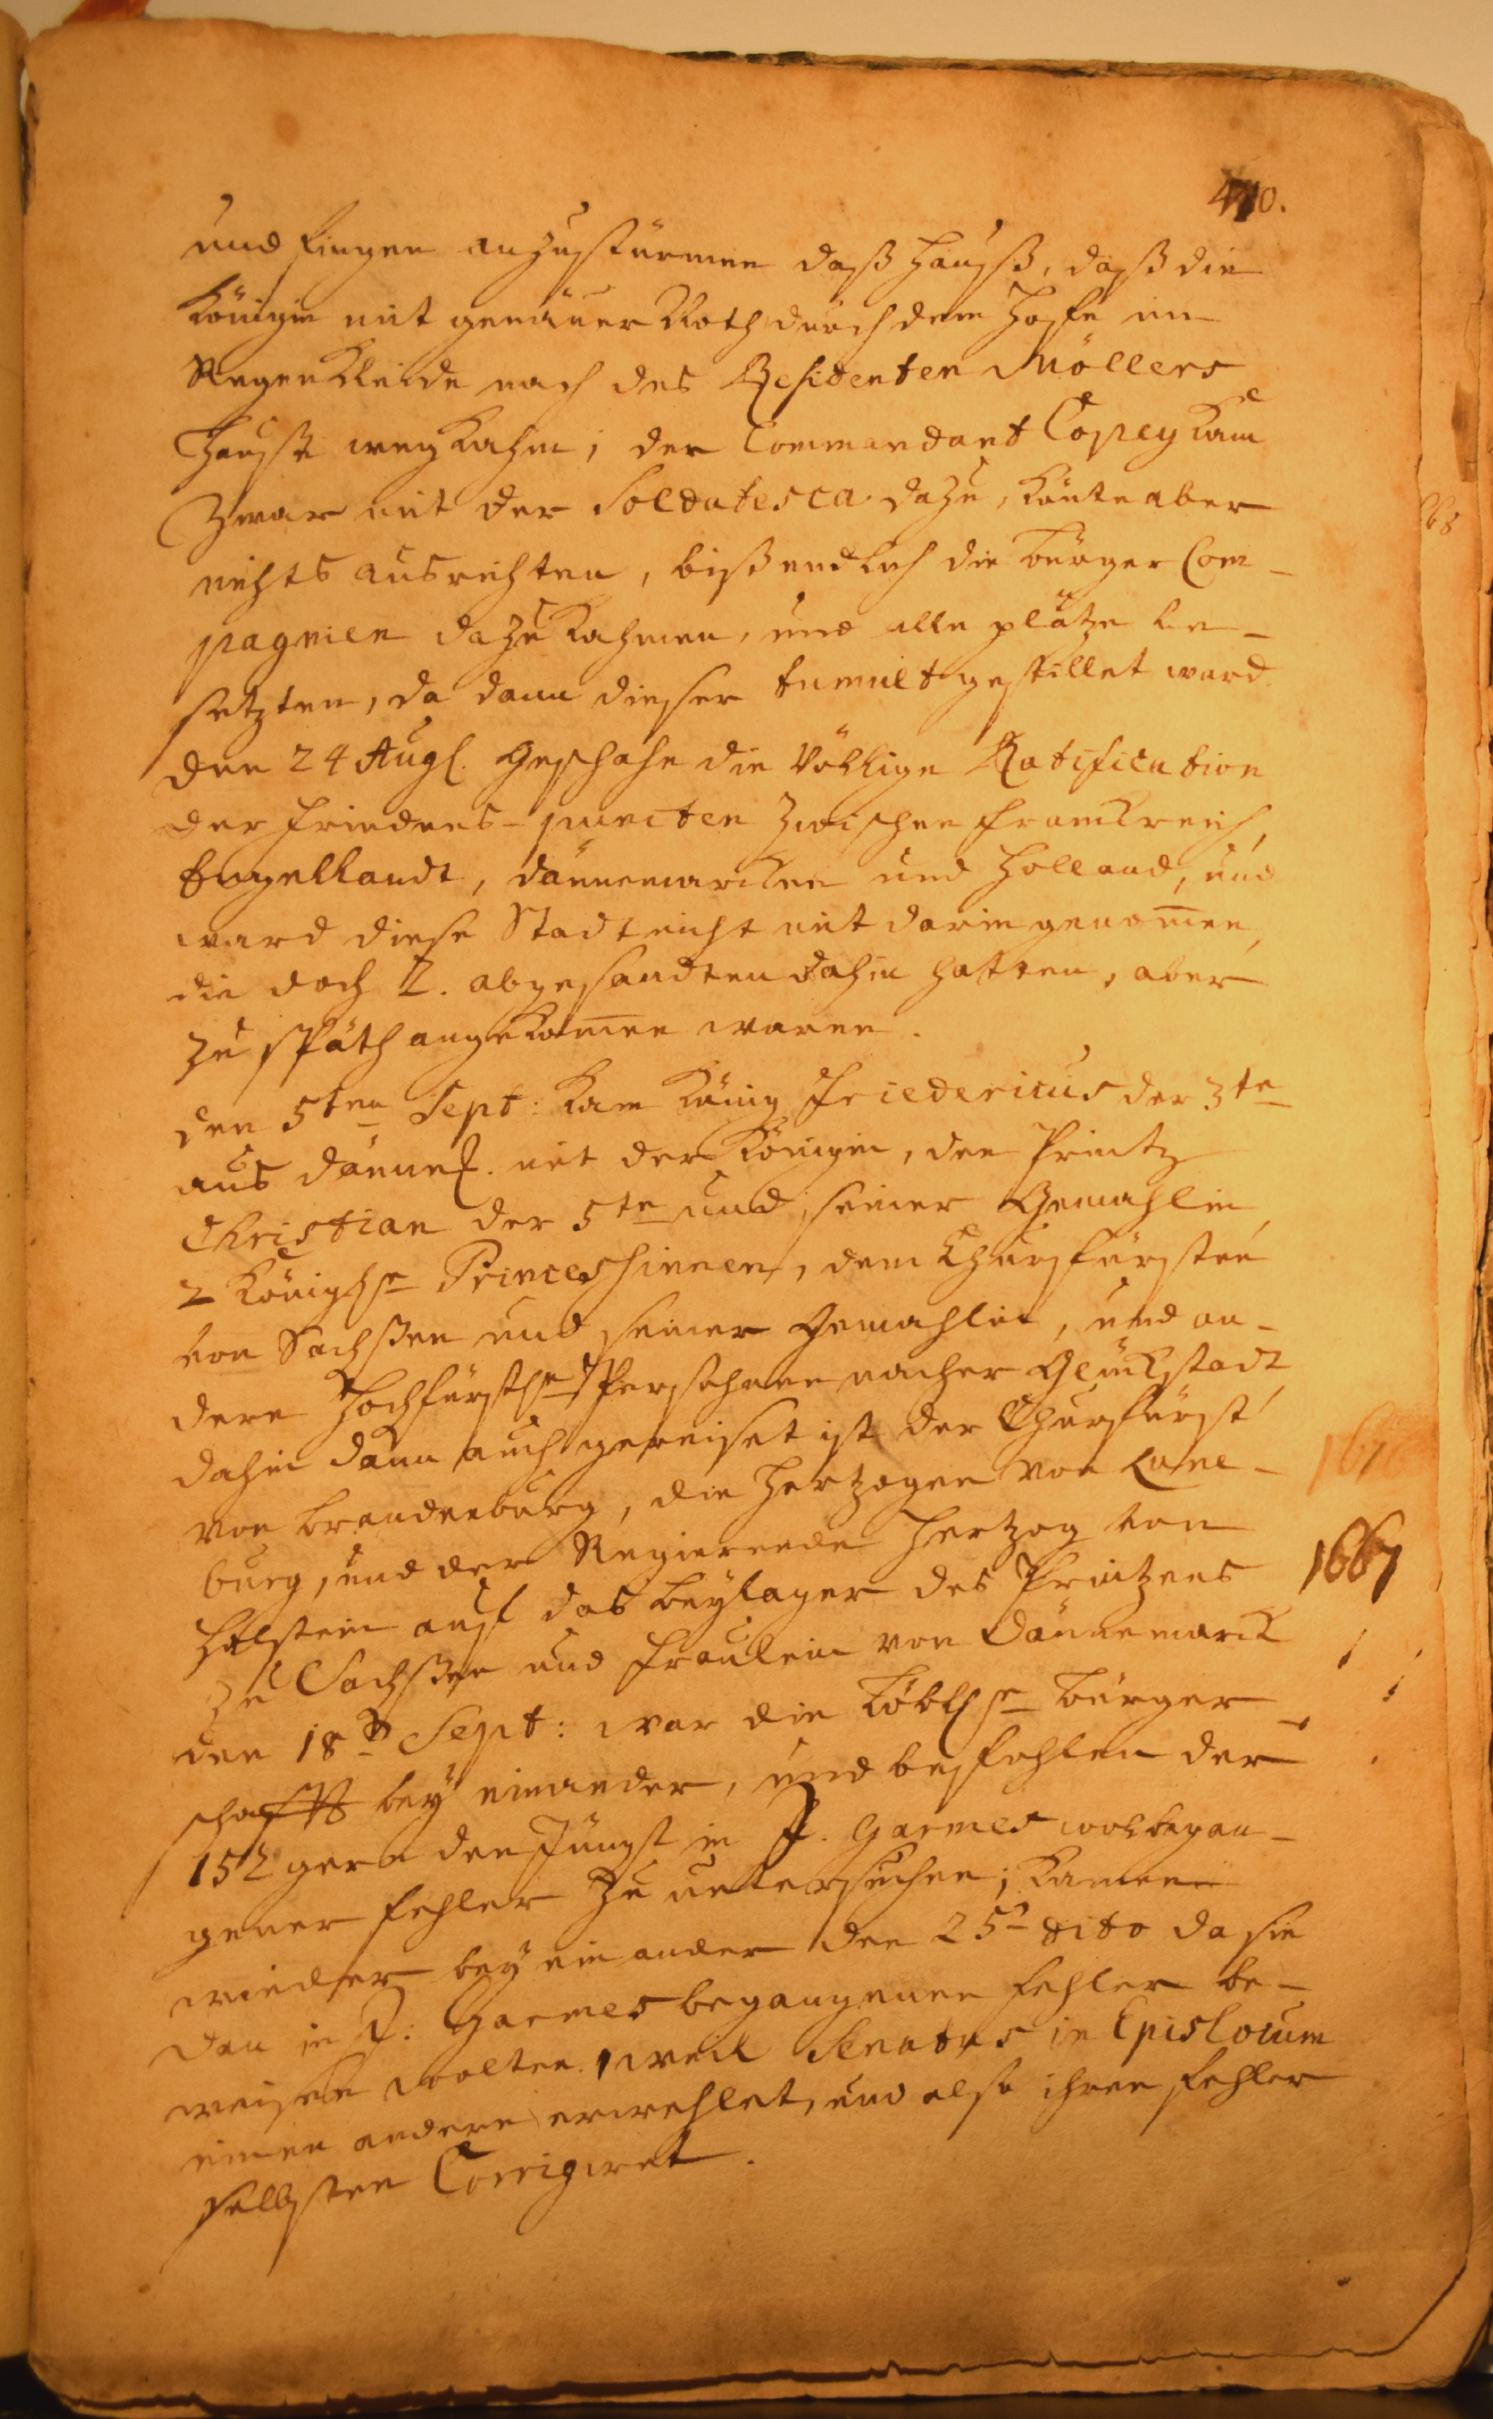 410.
und fingen an zu stürmen daß Hauß, daß die
Königin mit genauer Noth durch dem Hoffe im
Regen Kleide nach des Residenten Möllers
Hauße weg Kahm; der Commandant Copey Kam
zwar mit der Soldatesca dazu, Konte aber
nichts ausrichten, biß endlich die Bürger Com-
pagnien dazu Kahmen, und alle plätze be-
setzten, da dann dieser tumult gestillet ward.
den 24 Augs. Geschahe die Völlige Ratification
der Friedens-puncten zwischen Franckreich,
Engellandt, Dännemarcken und Holland, und
ward diese Stadt nicht mit darin genom̅en,
die doch 2. abgesandten dahin hatten, aber
zu späth angekom̅en waren.
den 5ten Sept: Kam König Friedericus der 3te
aus Dännem. mit der Königin, den Printz
Christian der 5te und seiner Gemahlin,
2 Königlse Princessinnen, dem Churfürsten
von Sachßen und seiner Gemahlin, und an-
dere Hochfürstlse Persohnen nacher Glückstadt
dahin dann auch gereiset ist der Churfürst
von Brandenburg, die Hertzogen von Lune-
burg, und der Regierende Hertzog von
Holstein auf das Beylager des Printzens
zu Sachßen und Fräulein von Dännemarck
1667
den 18t Sept: war die Löblse Bürger-
schafft bey einander, und befehlen der
152 gern den Jüngst in J. Garmes wol began-
gener Fehler zu untersuchen; Kamen
wieder bey ein ander den 25t dito da sie
dan in J: Garmes begangenen Fehler be-
weisen wolten. weil Senatus in Epis locum
einen andern erwehlet, und also ihren Fehler
selbsten Corrigiret.